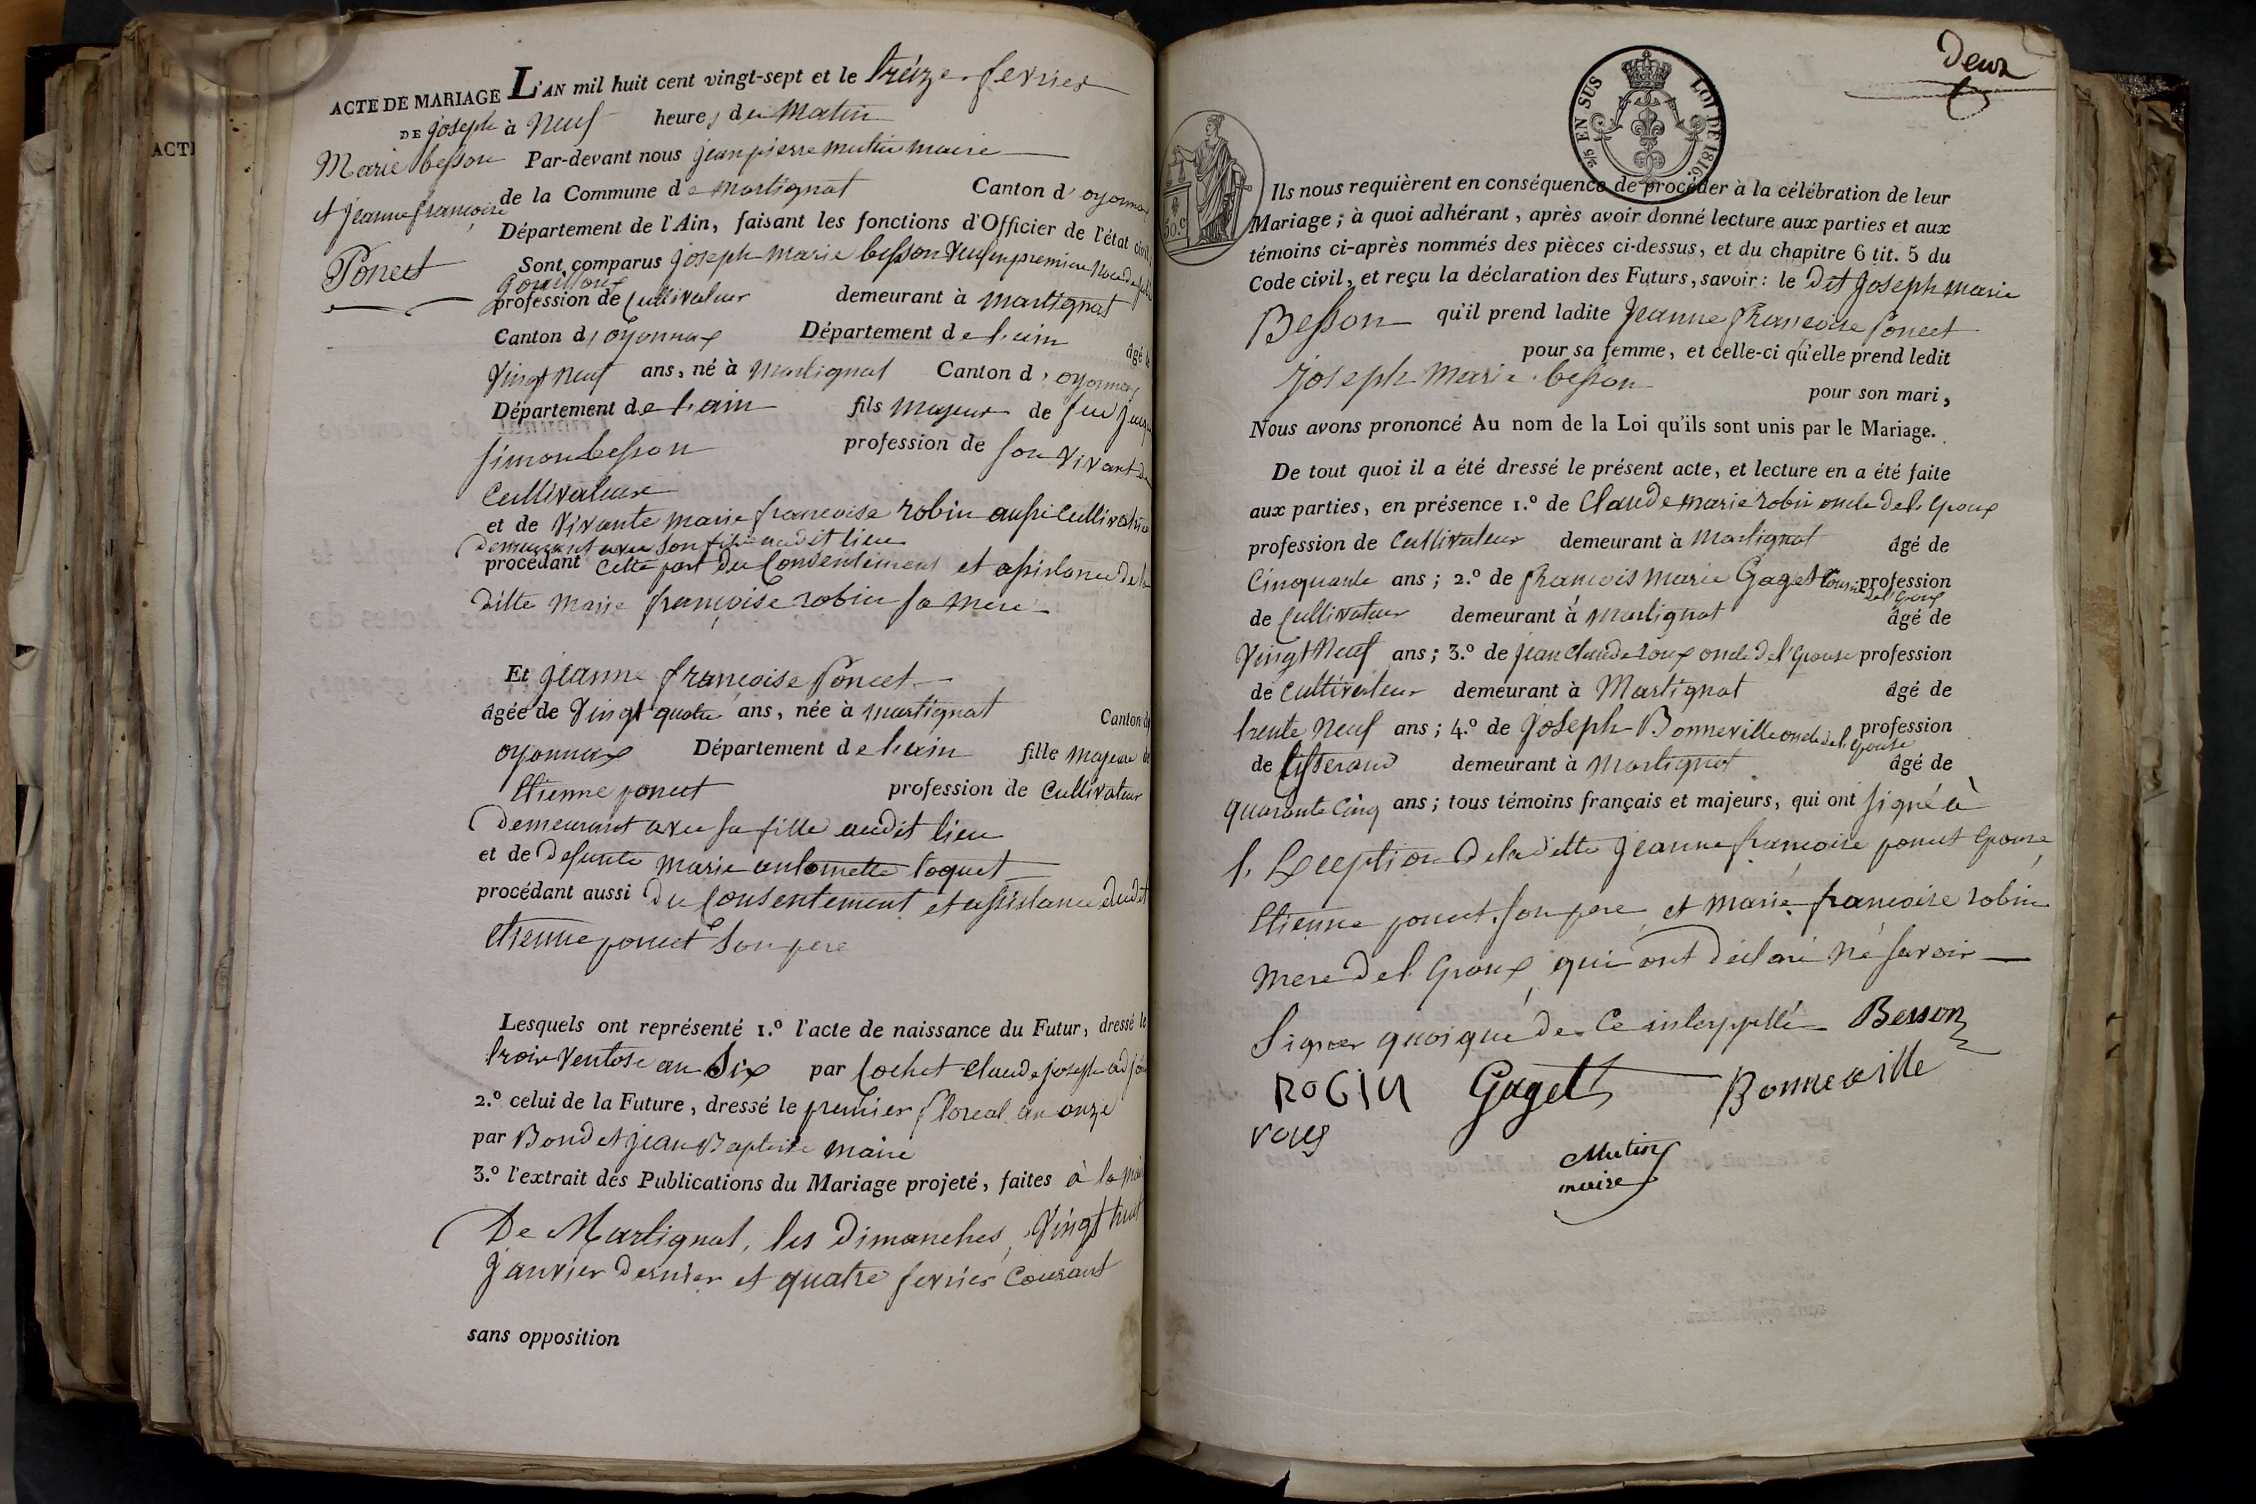 ACTE DE MARIAGE
DE joseph
Marie besson
et jeanne françoise
Poncet
L'AN mil huit cent vingt-sept et le treize fevrier
à neuf heures du matin
Par-devant nous jean pierre mutin maire
de la Commune de martignat Canton d'oyonnax
Département de l'Ain, faisant les fonctions d'Officier de l'état civil,
Sont comparus joseph marie besson veuf en premiere noce de
profession de cultivateur demeurant à martignat
Canton d'oyonnax Département de l'ain âgé de
vingt neuf ans, né à martignat Canton d'oyonnax
Département de l'ain fils majeur de feu
simon besson profession de son vivant de
cultivateur
et de vivante marie françoise robin aussi cultivatrice
demeurant avec son fils audit lieu
procédant cette part du consentement et assistance de la
ditte marie françoise robin sa mere
Et jeanne françoise poncet
âgée de vingt quatre ans, née à martignat Canton d
oyonnax Département de l'ain fille majeure de
Etienne poncet profession de cultivateur
demeurant avec sa fille audit lieu
et de defunte marie antoinette toquet
procédant aussi du consentement et assistance dudit
etienne poncet son pere
Lesquels ont représenté 1.º l'acte de naissance du Futur, dressé le
trois ventose an six par cochet claude joseph adjoint
2.º celui de la Future, dressé le premier floreal an onze
par Bondet jean Baptiste maire
3.º l'extrait des Publications du Mariage projeté, faites à la
De Martignat, les dimanches, vingt huit
janvier dernier et quatre fevrier courant
sans opposition
ACT
deux
2/5 EN SUS LOI DE 1816.
50.C
Ils nous requièrent en conséquence de procéder à la célébration de leur
Mariage; à quoi adhérant, après avoir donné lecture aux parties et aux
témoins ci-après nommés des pièces ci-dessus, et du chapitre 6 tit. 5 du
Code civil, et reçu la déclaration des Futurs, savoir: le dit joseph marie
Besson qu'il prend ladite jeanne françoise poncet
pour sa femme, et celle-ci qu'elle prend ledit
joseph marie besson pour son mari,
Nous avons prononcé Au nom de la Loi qu'ils sont unis par le Mariage.
De tout quoi il a été dressé le présent acte, et lecture en a été faite
aux parties, en présence 1.º de claude marie robin oncle de l'epoux
profession de cultivateur demeurant à martignat âgé de
cinquante ans; 2.º de françois marie Gaget cousin de l'epoux profession
de cultivateur demeurant à martignat âgé de
vingt neuf ans; 3.º de jean claude roux oncle de l'epouse profession
de cultivateur demeurant à Martignat âgé de
trente neuf ans; 4.º de joseph Bonneville oncle de l'epouse profession
de tisserand demeurant à martignat âgé de
quarante cinq ans; tous témoins français et majeurs, qui ont signé à
l'exception de la ditte jeanne françoise poncet epouse
Etienne poncet son pere et marie françoise robin
mere de l'epoux qui ont declaré ne savoir
signer quoique de ce interppellé Besson
ROBIN Gaget Bonneville
roux
Mutin
maire